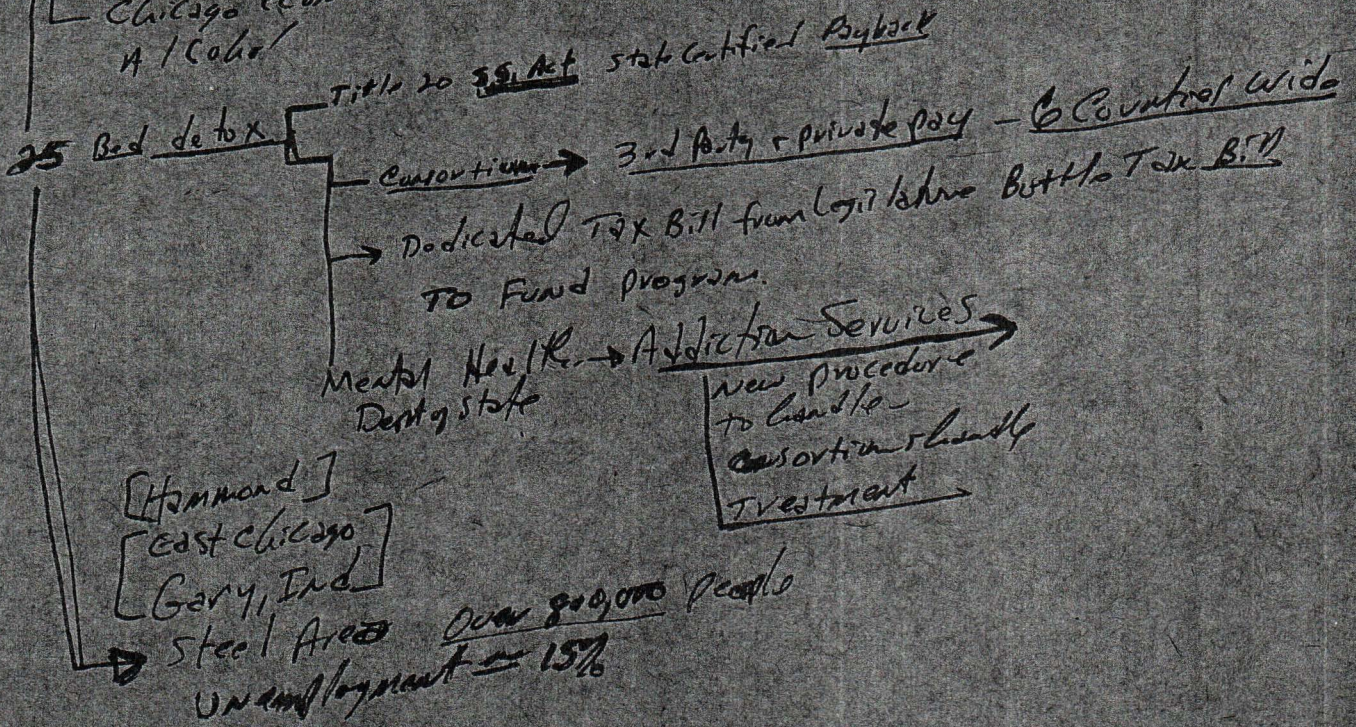 Chicago
Alcohol
Title 20 SS, Act State Certified Payback
25 Bed detox
Consortium → 3rd Party + private pay - 6 Counties wide
→ Dedicated Tax Bill from Legislature Bottle Tax Bill
To Fund program.
Mental Health → Addiction Services
Dept of State
New procedure
to handle
consortiums handle
Treatment
[Hammond]
[East Chicago
Gary, Ind]
Steel Area Over 800,000 people
Unemployment = 15%